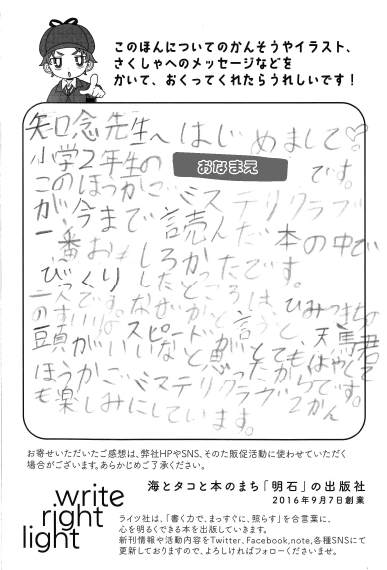 このほんについてのかんそうやイラスト、
さくしゃへのメッセージなどを
かいて、おくってくれたらうれしいです！
知念先生へはじめまして♡
小学2年生の おなまえ です。
このほうかごミステリクラブ
が、今まで読んだ本の中で
一番おもしろかったです。
びっくりしたところは、ひみつきちの
ところです。なぜかと言うと、天馬君
のすいりはスピードがとてもはやくて
頭がいいなと思ったからです。
ほうかごミステリクラブ2かん
も楽しみにしています。
お寄せいただいたご感想は、弊社HPやSNS、そのた販促活動に使わせていただく
場合がございます。あらかじめご了承ください。
海とタコと本のまち「明石」の出版社
2016年9月7日創業
write
right
light
ライツ社は、「書く力で、まっすぐに、照らす」を合言葉に、
心を明るくできる本を出版していきます。
新刊情報や活動内容をTwitter、Facebook,note,各種SNSにて
更新しておりますので、よろしければフォローくださいませ。